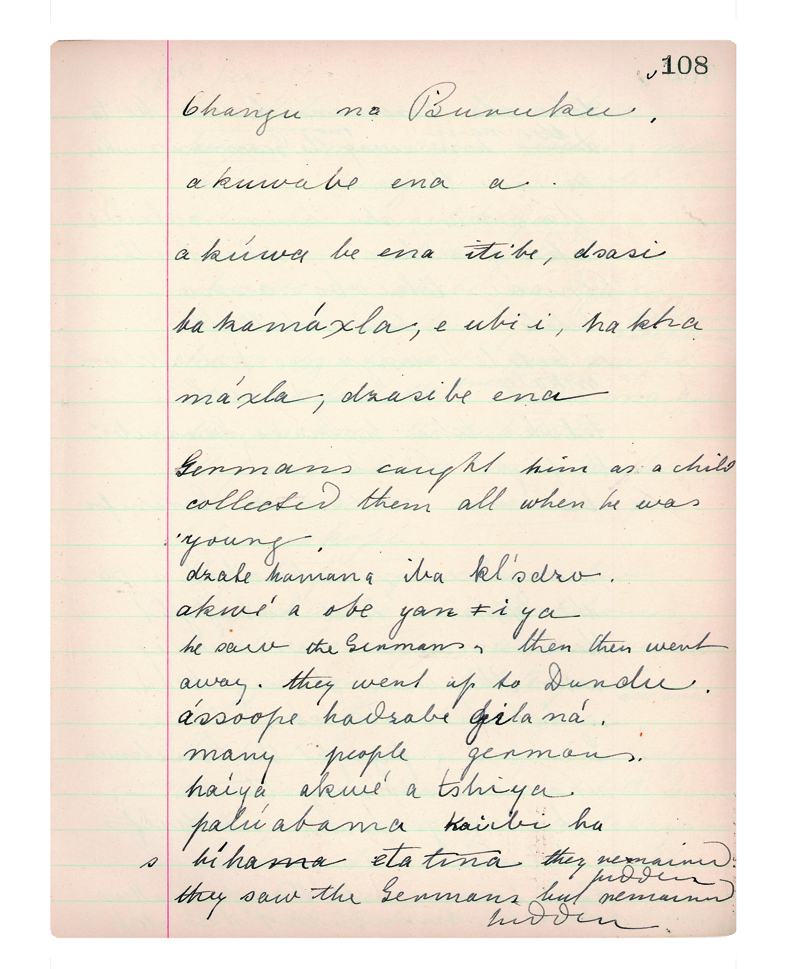 108
Changu na Bunuku,
akuwabe ena a.
akúwa be ena itibe, dsasi
bakamáxla, e ubi i, haktra
máxla, dzasibe ena
Germans caught him as a child
collected them all when he was
young
dzabe hamana iba kl'sdzo.
akwé a obe yan ≠ i ya
he saw the Germans, then then went
away. they went up to Dundu.
ássoope hadzabe gilaná.
many people germans.
haíya akwé a tshiya.
palúabama kaubi ha
s bíhama etatina they remained
hidden
they saw the Germans but remained
hidden